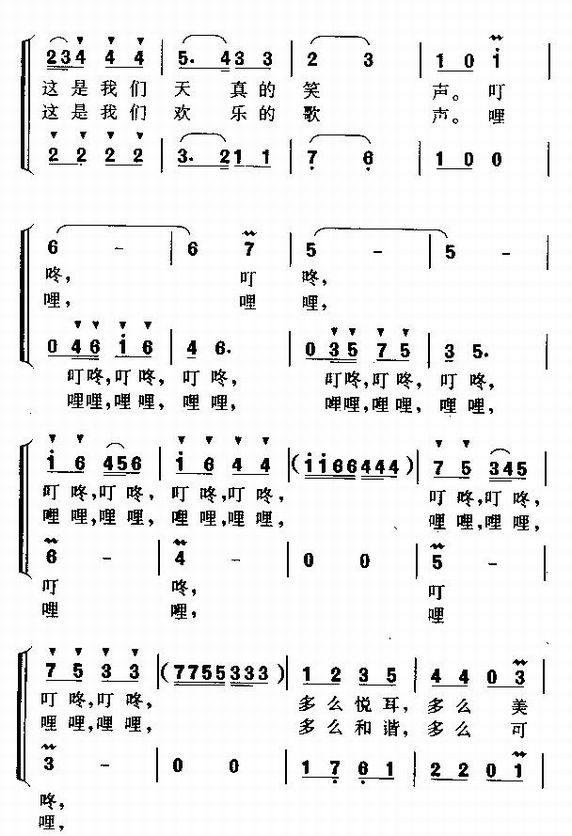 234 4 4 | 5. 4 3 3 | 2 3 | 1 0 i |
这是我们 天 真的 笑 声。叮
这是我们 欢 乐的 歌 声。哩
2 2 2 2 | 3. 2 1 1 | 7 6 | 1 0 0 |
6 - | 6 7 | 5 - | 5 - |
咚, 叮 咚,
哩, 哩 哩,
0 4 6 i 6 | 4 6. | 0 3 5 7 5 | 3 5. |
叮咚,叮咚, 叮咚, 叮咚,叮咚, 叮咚,
哩哩,哩哩, 哩哩, 哩哩,哩哩, 哩哩,
i 6 456 | i 6 4 4 | (ii66444) | 7 5 345 |
叮咚,叮咚, 叮咚,叮咚, 叮咚,叮咚,
哩哩,哩哩, 哩哩,哩哩, 哩哩,哩哩,
6 - | 4 - | 0 0 | 5 - |
叮 咚, 叮
哩 哩, 哩
7 5 3 3 | (7755333) | 1 2 3 5 | 4 4 0 3 |
叮咚,叮咚, 多么悦耳, 多么 美
哩哩,哩哩, 多么和谐, 多么 可
3 - | 0 0 | 1 7 6 1 | 2 2 0 1 |
咚,
哩,